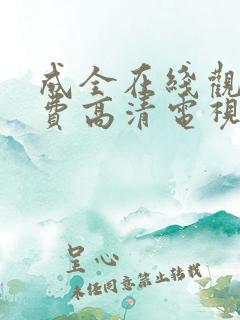 成全在綫觀
費高清電視
呈心
未经同意禁止转载